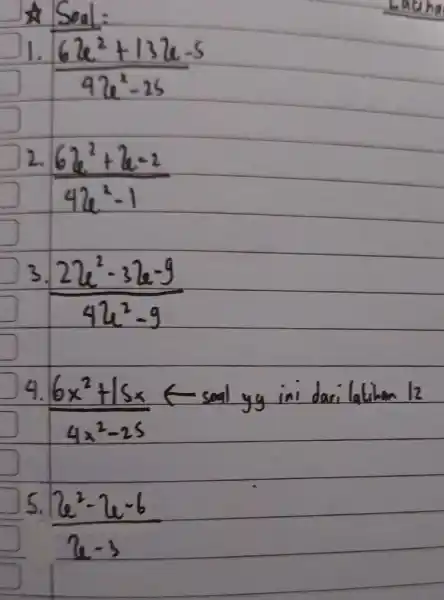 ☆ Soal:
Latiha
1. 6x² + 13x - 5
4x² - 25
2. 6x² + x - 2
4x² - 1
3. 2x² - 3x - 9
4x² - 9
4. 6x² + 15x ← soal yg ini dari latihan 12
4x² - 25
5. x² - x - 6
x - 3